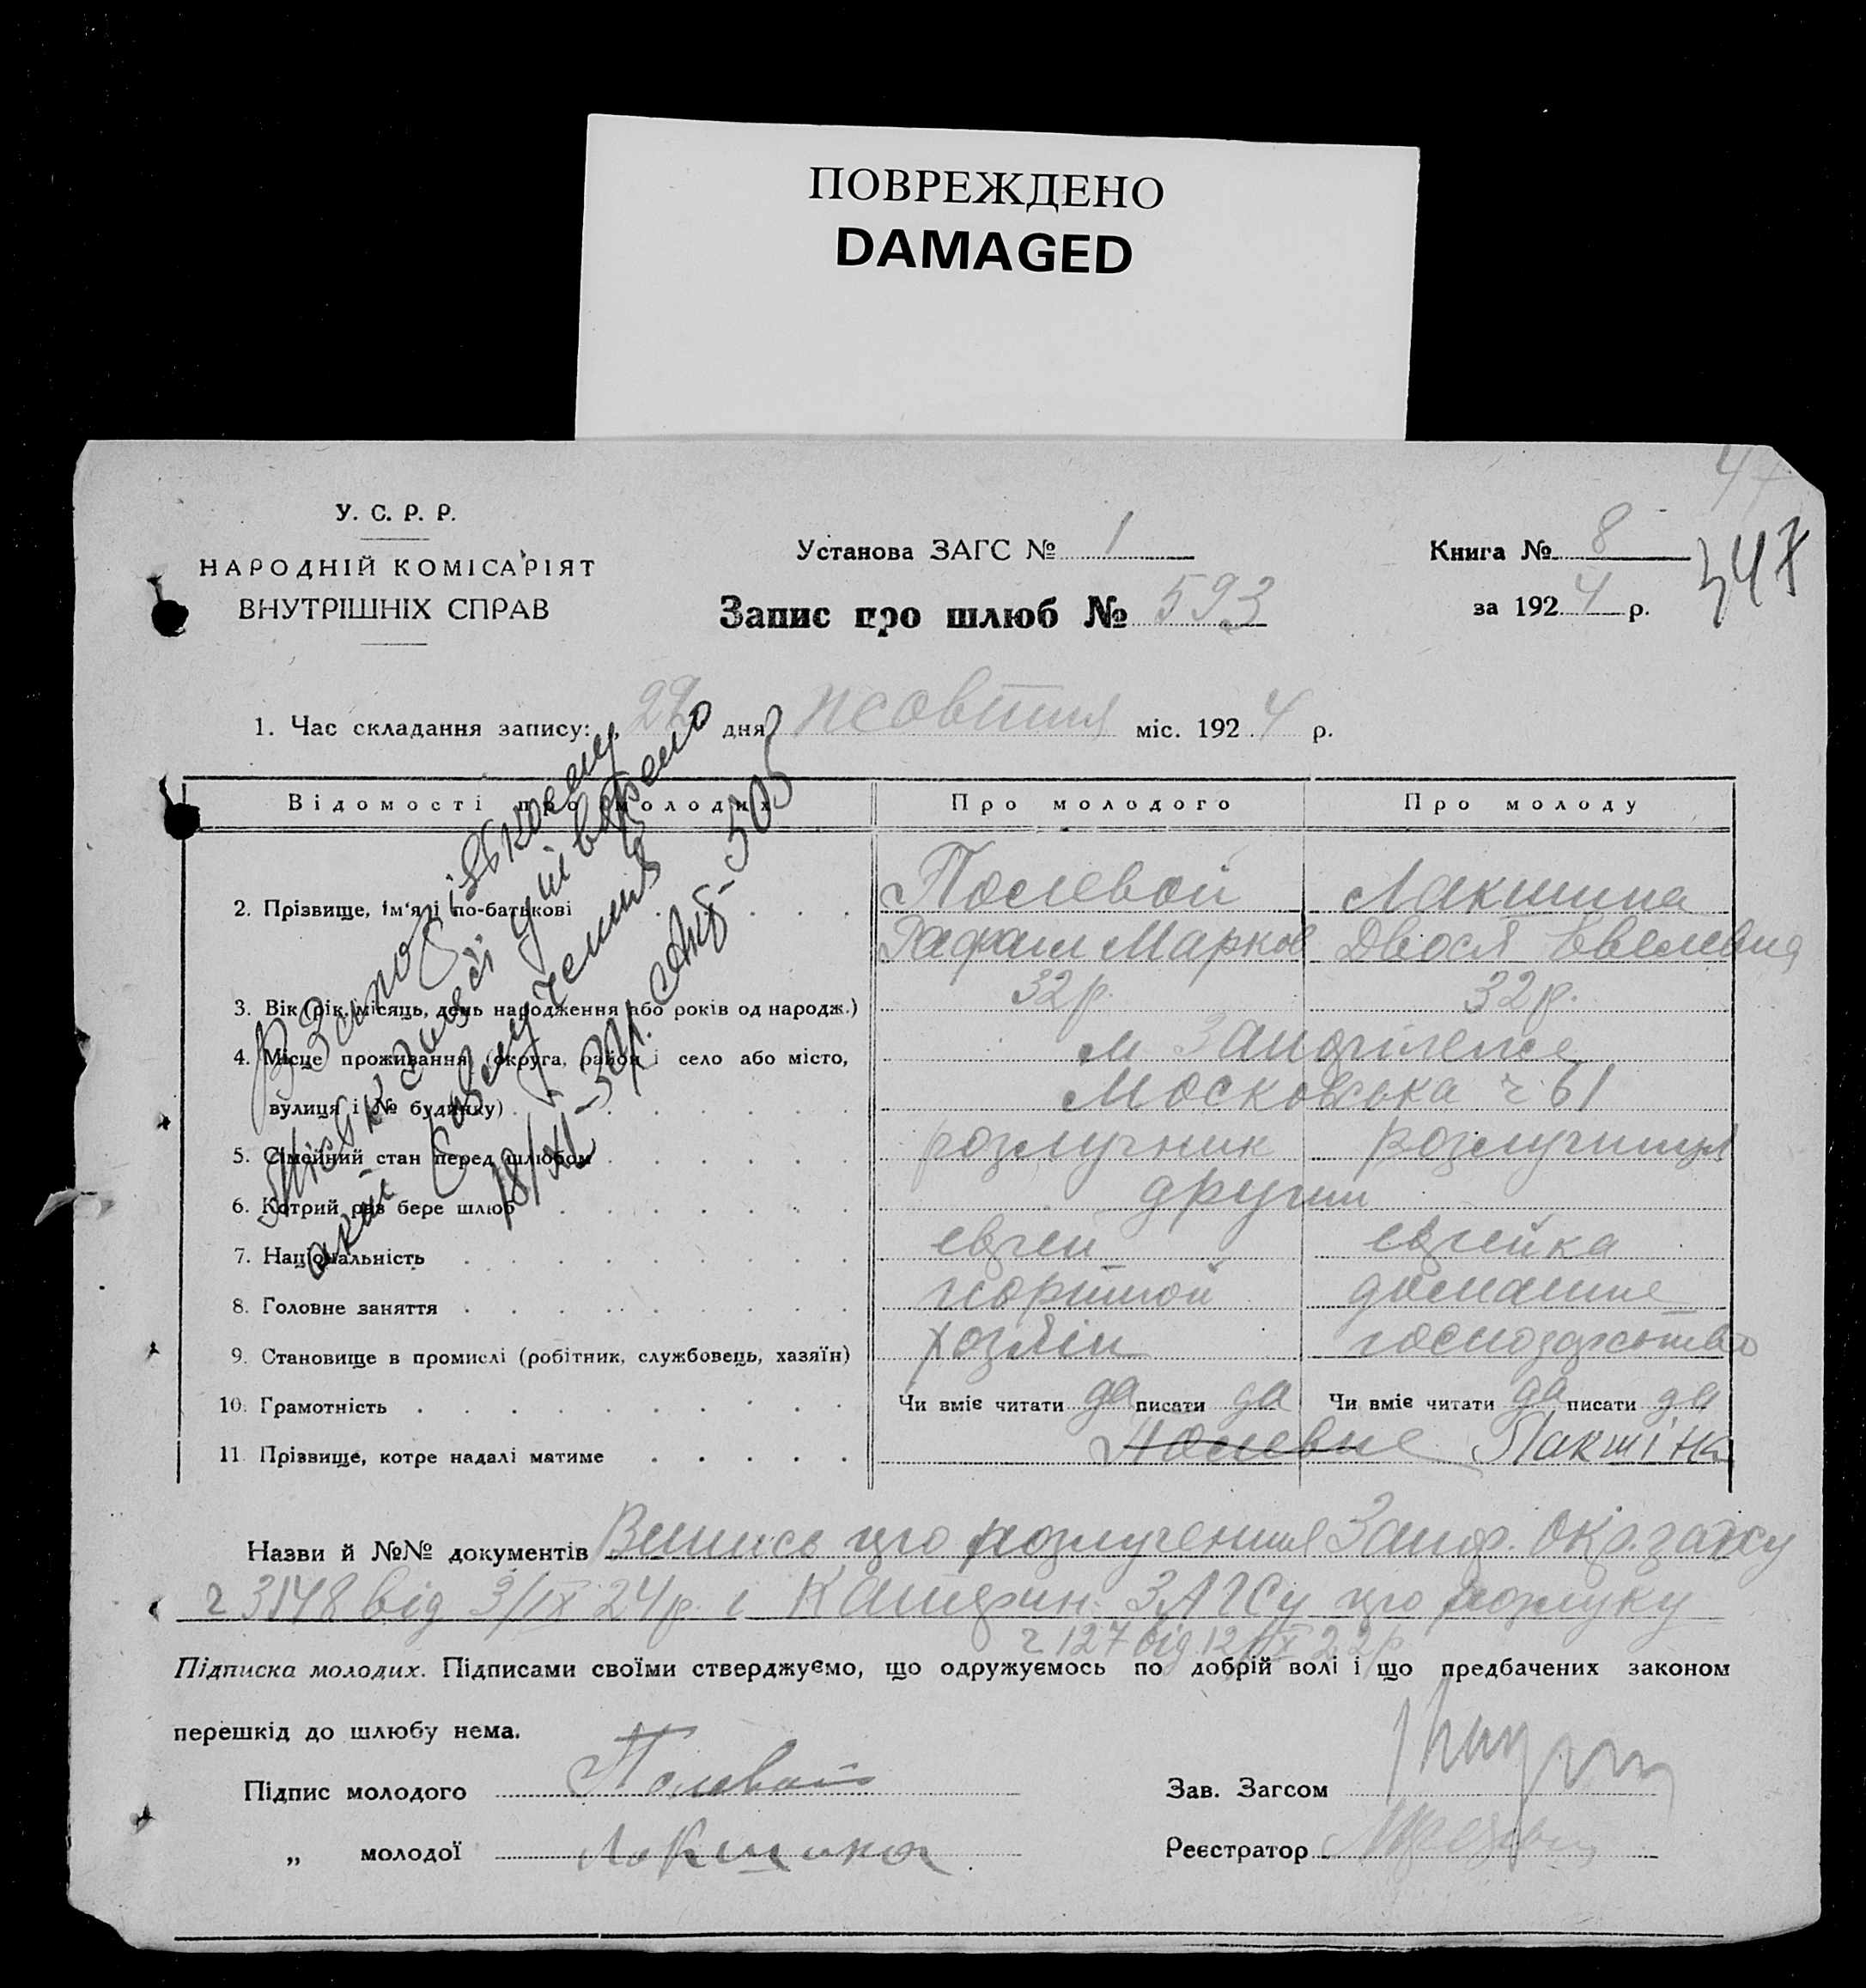 ПОВРЕЖДЕНО
DAMAGED
47
У. С. Р. Р.
НАРОДНІЙ КОМІСАРІЯТ
ВНУТРІШНІХ СПРАВ
Установа ЗАГС № 1
Запис про шлюб № 593
Книга № 8
за 1924 р.
347
1. Час складання запису: 22 дня жовтня міс. 1924 р.
Відомості про молодих
Про молодого
Про молоду
2. Прізвище, ім'я і по-батькові
Полевой
Лакшина
Рафаил Марков
Двося
3. Вік (рік, місяць, день народження або років од народж.)
32 р.
32 р.
4. Місце проживання (округа, район і село або місто,
м
вулиця і № будинку)
Московська ч 61
5. Сімейний стан перед шлюбом
розлучник
розлучниця
6. Котрий раз бере шлюб
другий
7. Національність
еврей
еврейка
8. Головне заняття
портной
домашнє
9. Становище в промислі (робітник, службовець, хазяїн)
хозяін
господарство
10. Грамотність
Чи вміє читати да писати да
Чи вміє читати да писати да
11. Прізвище, котре надалі матиме
Полевие Лакшіна
В Запорізькому
18/XI-30р.
Назви й №№ документів Випись про розлучення Запор. Окр. загсу
ч 3148 від 3/IX 24 р. і ЗАГСу про розлуку
ч 127 від 12/IX 22 р
Підписка молодих. Підписами своїми стверджуємо, що одружуємось по добрій волі і що предбачених законом
перешкід до шлюбу нема.
Підпис молодого Полевой
„ молодої Локшина
Зав. Загсом
Реєстратор